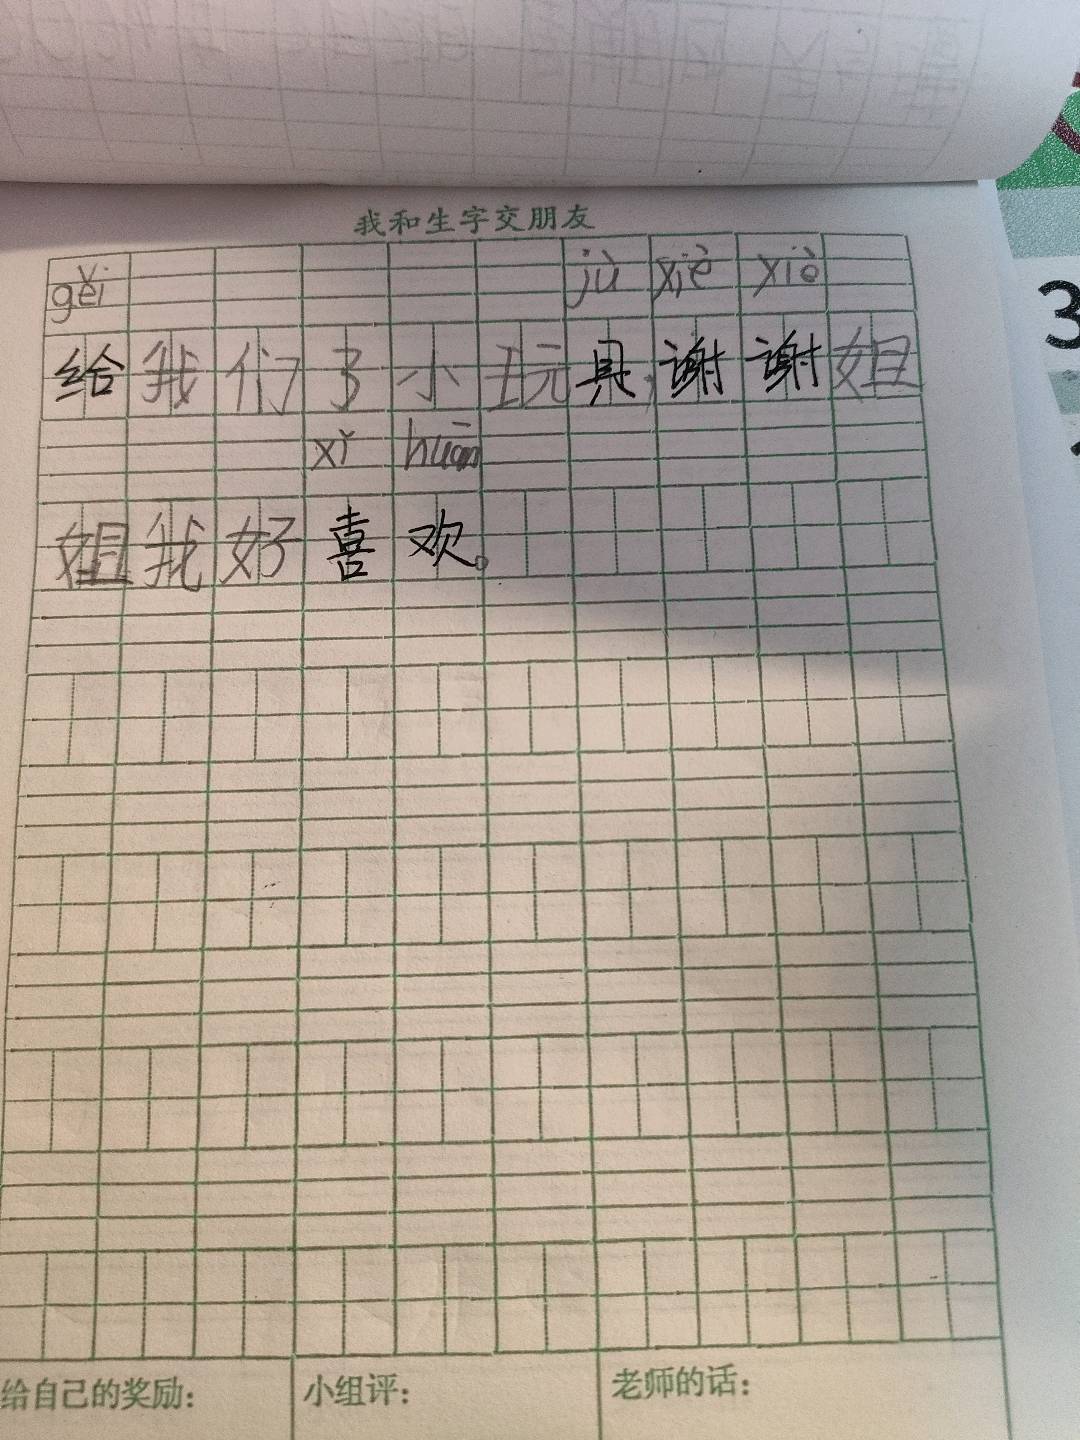 我和生字交朋友
gěi jù xiè xiè
给我们了小玩具,谢谢姐
xǐ huān
姐我好喜欢。
给自己的奖励:
小组评:
老师的话:
3